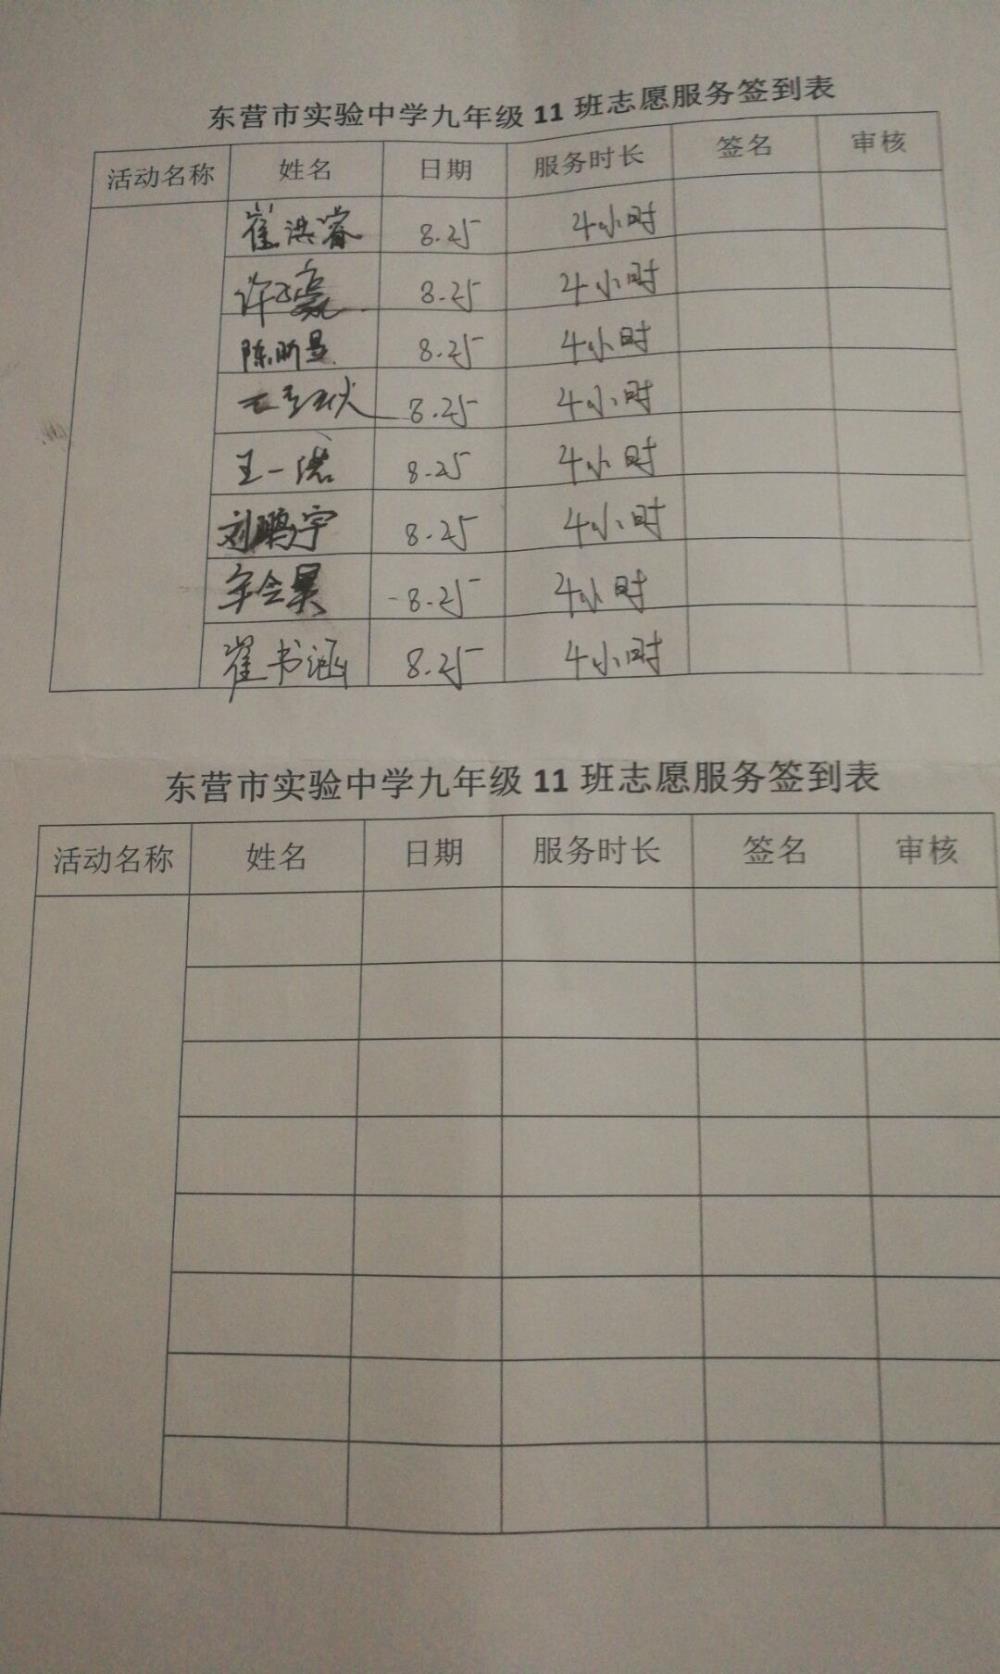 东营市实验中学九年级 11 班志愿服务签到表
活动名称 姓名 日期 服务时长 签名 审核
崔洪睿 8.25 4小时
许 8.25 4小时
陈昕昱 8.25 4小时
8.25 4小时
王一诺 8.25 4小时
刘鹏宇 8.25 4小时
8.25 4小时
崔书涵 8.25 4小时
东营市实验中学九年级 11 班志愿服务签到表
活动名称 姓名 日期 服务时长 签名 审核